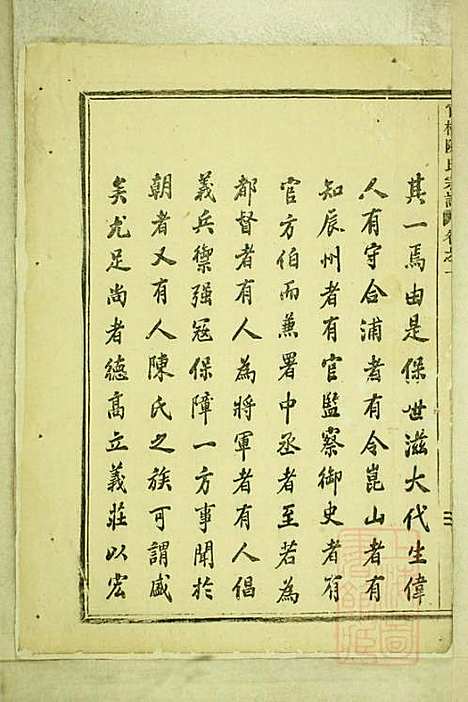 其一焉由是保世滋大代生偉
人有守合浦者有令崑山者有
知辰州者有官監察御史者有
官方伯而兼署中丞者至若為
都督者有人為將軍者有人倡
義兵禦强寇保障一方事聞於
朝者又有人陳氏之族可謂盛
矣尤足尚者德高立義莊以宏